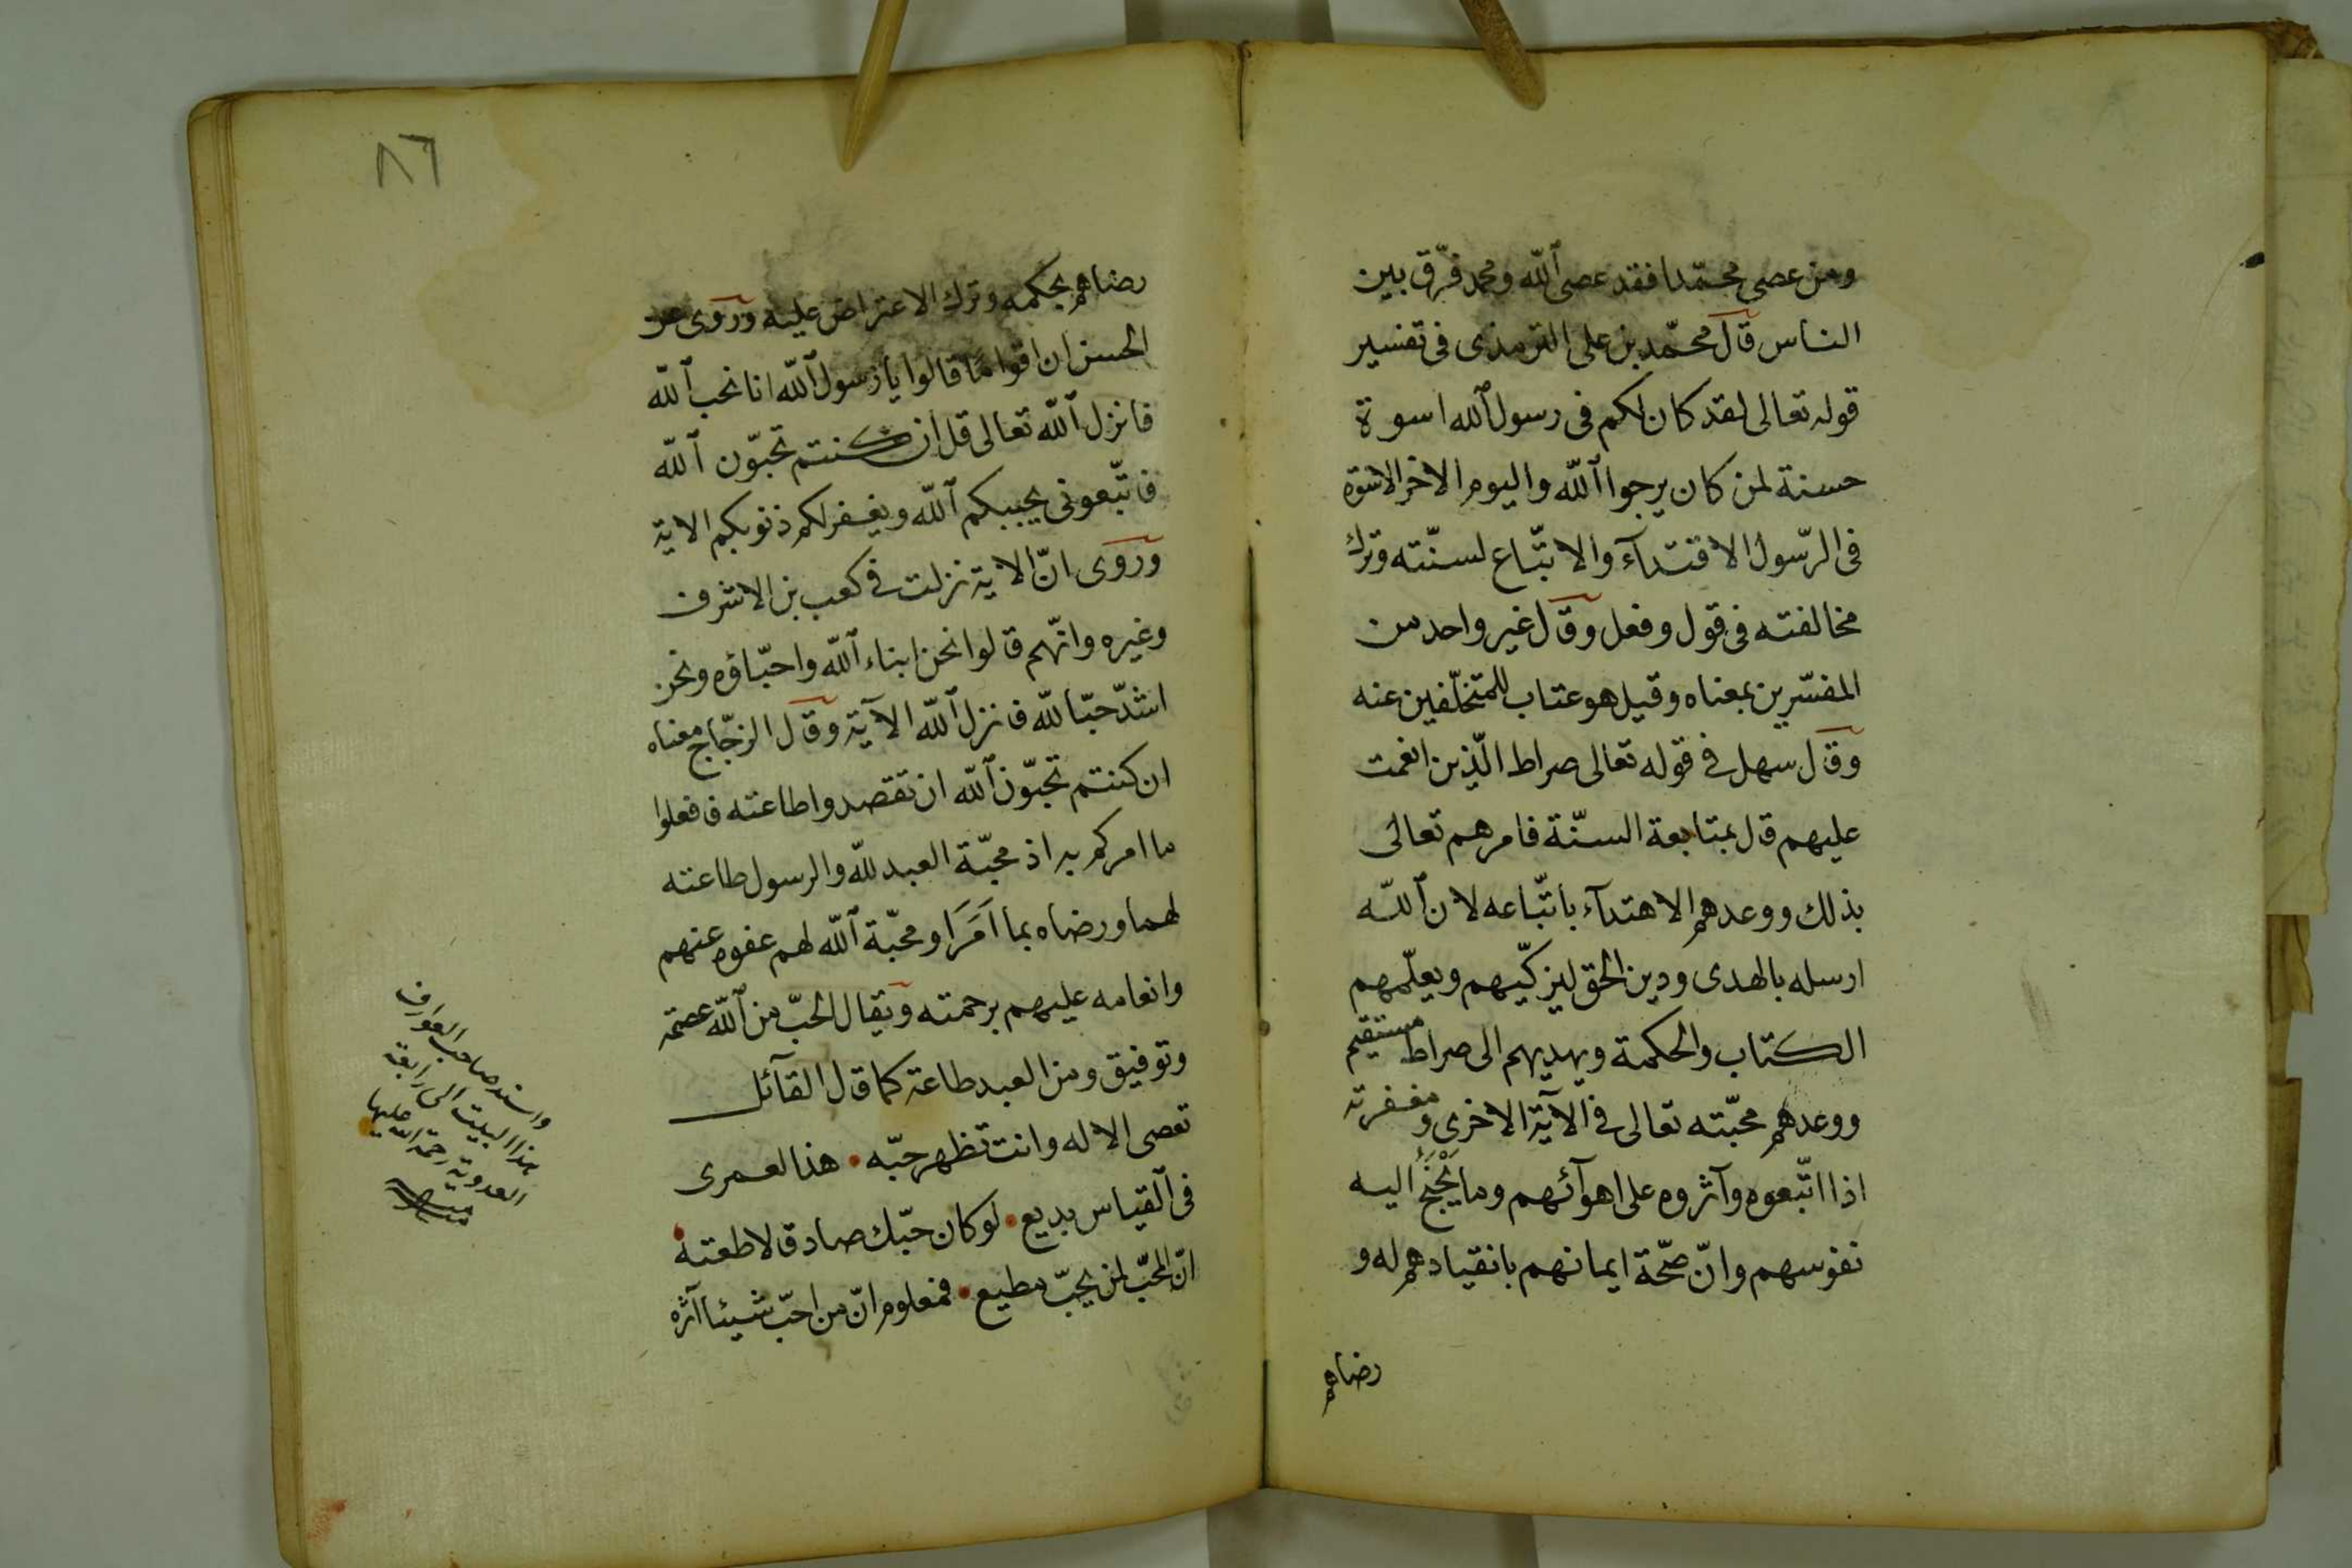 ومن عصى محمّدا فقد عصى الله ومحمد فرّق بين
الناس قال محمّد بن على الترمذى فى تفسير
قوله تعالى لقد كان لكم فى رسول الله اسوة
حسنة لمن كان يرجوا الله واليوم الاخر الاسوة
فى الرّسول الاقتدآء والاتّباع لسنّته وترك
مخالفته فى قول وفعل وقال غير واحد من
المفسّرين بمعناه وقيل هو عتاب للمتخلّفين عنه
وقال سهل فى قوله تعالى صراط الّذين انعمت
عليهم قال بمتابعة السنّة فامرهم تعالى
بذلك ووعدهم الاهتدآء باتّباعه لان الله
ارسله بالهدى ودين الحق ليزكّيهم ويعلّمهم
الكتاب والحكمة ويهديهم الى صراط مستقيم
ووعدهم محبّته تعالى فى الآية الاخرى ومغفرته
اذا اتّبعوه وآثروه على اهوآئهم وما يَجْنَحُ اليه
نفوسهم وانّ صحّة ايمانهم بانقيادهم له و
رضاهم
٨٦
رضاهم بحكمه وترك الاعتراض عليه وروى عن
الحسن ان اقوامًا قالوا يا رسول الله انا نحب الله
فانزل الله تعالى قل ان كنتم تحبّون الله
فاتّبعونى يحببكم الله ويغفر لكم ذنوبكم الاية
وروى انّ الاية نزلت فى كعب بن الاشرف
وغيره وانّهم قالوا نحن ابناء الله واحبّاؤه ونحن
اشدّ حبّا لله فانزل الله الآية وقال الزجّاج معناه
ان كنتم تحبّون الله ان تقصدوا طاعته فافعلوا
ما امركم به اذ محبّة العبد لله والرسول طاعته
لهما ورضاه بما اَمَرَا ومحبّة الله لهم عفوه عنهم
وانعامه عليهم برحمته ويقال الحبّ من الله عصمة
وتوفيق ومن العبد طاعة كما قال القآئل
تعصى الاله وانت تظهر حبّه • هذا لعمرى
فى القياس بديع • لو كان حبّك صادقا لاطعته •
انّ المحبّ لمن يحبّ مطيع • فمعلوم انّ من احبّ شيئا آثره
واسند صاحب العوارف
هذا البيت الى رابعة
العدوية رحمة الله عليها